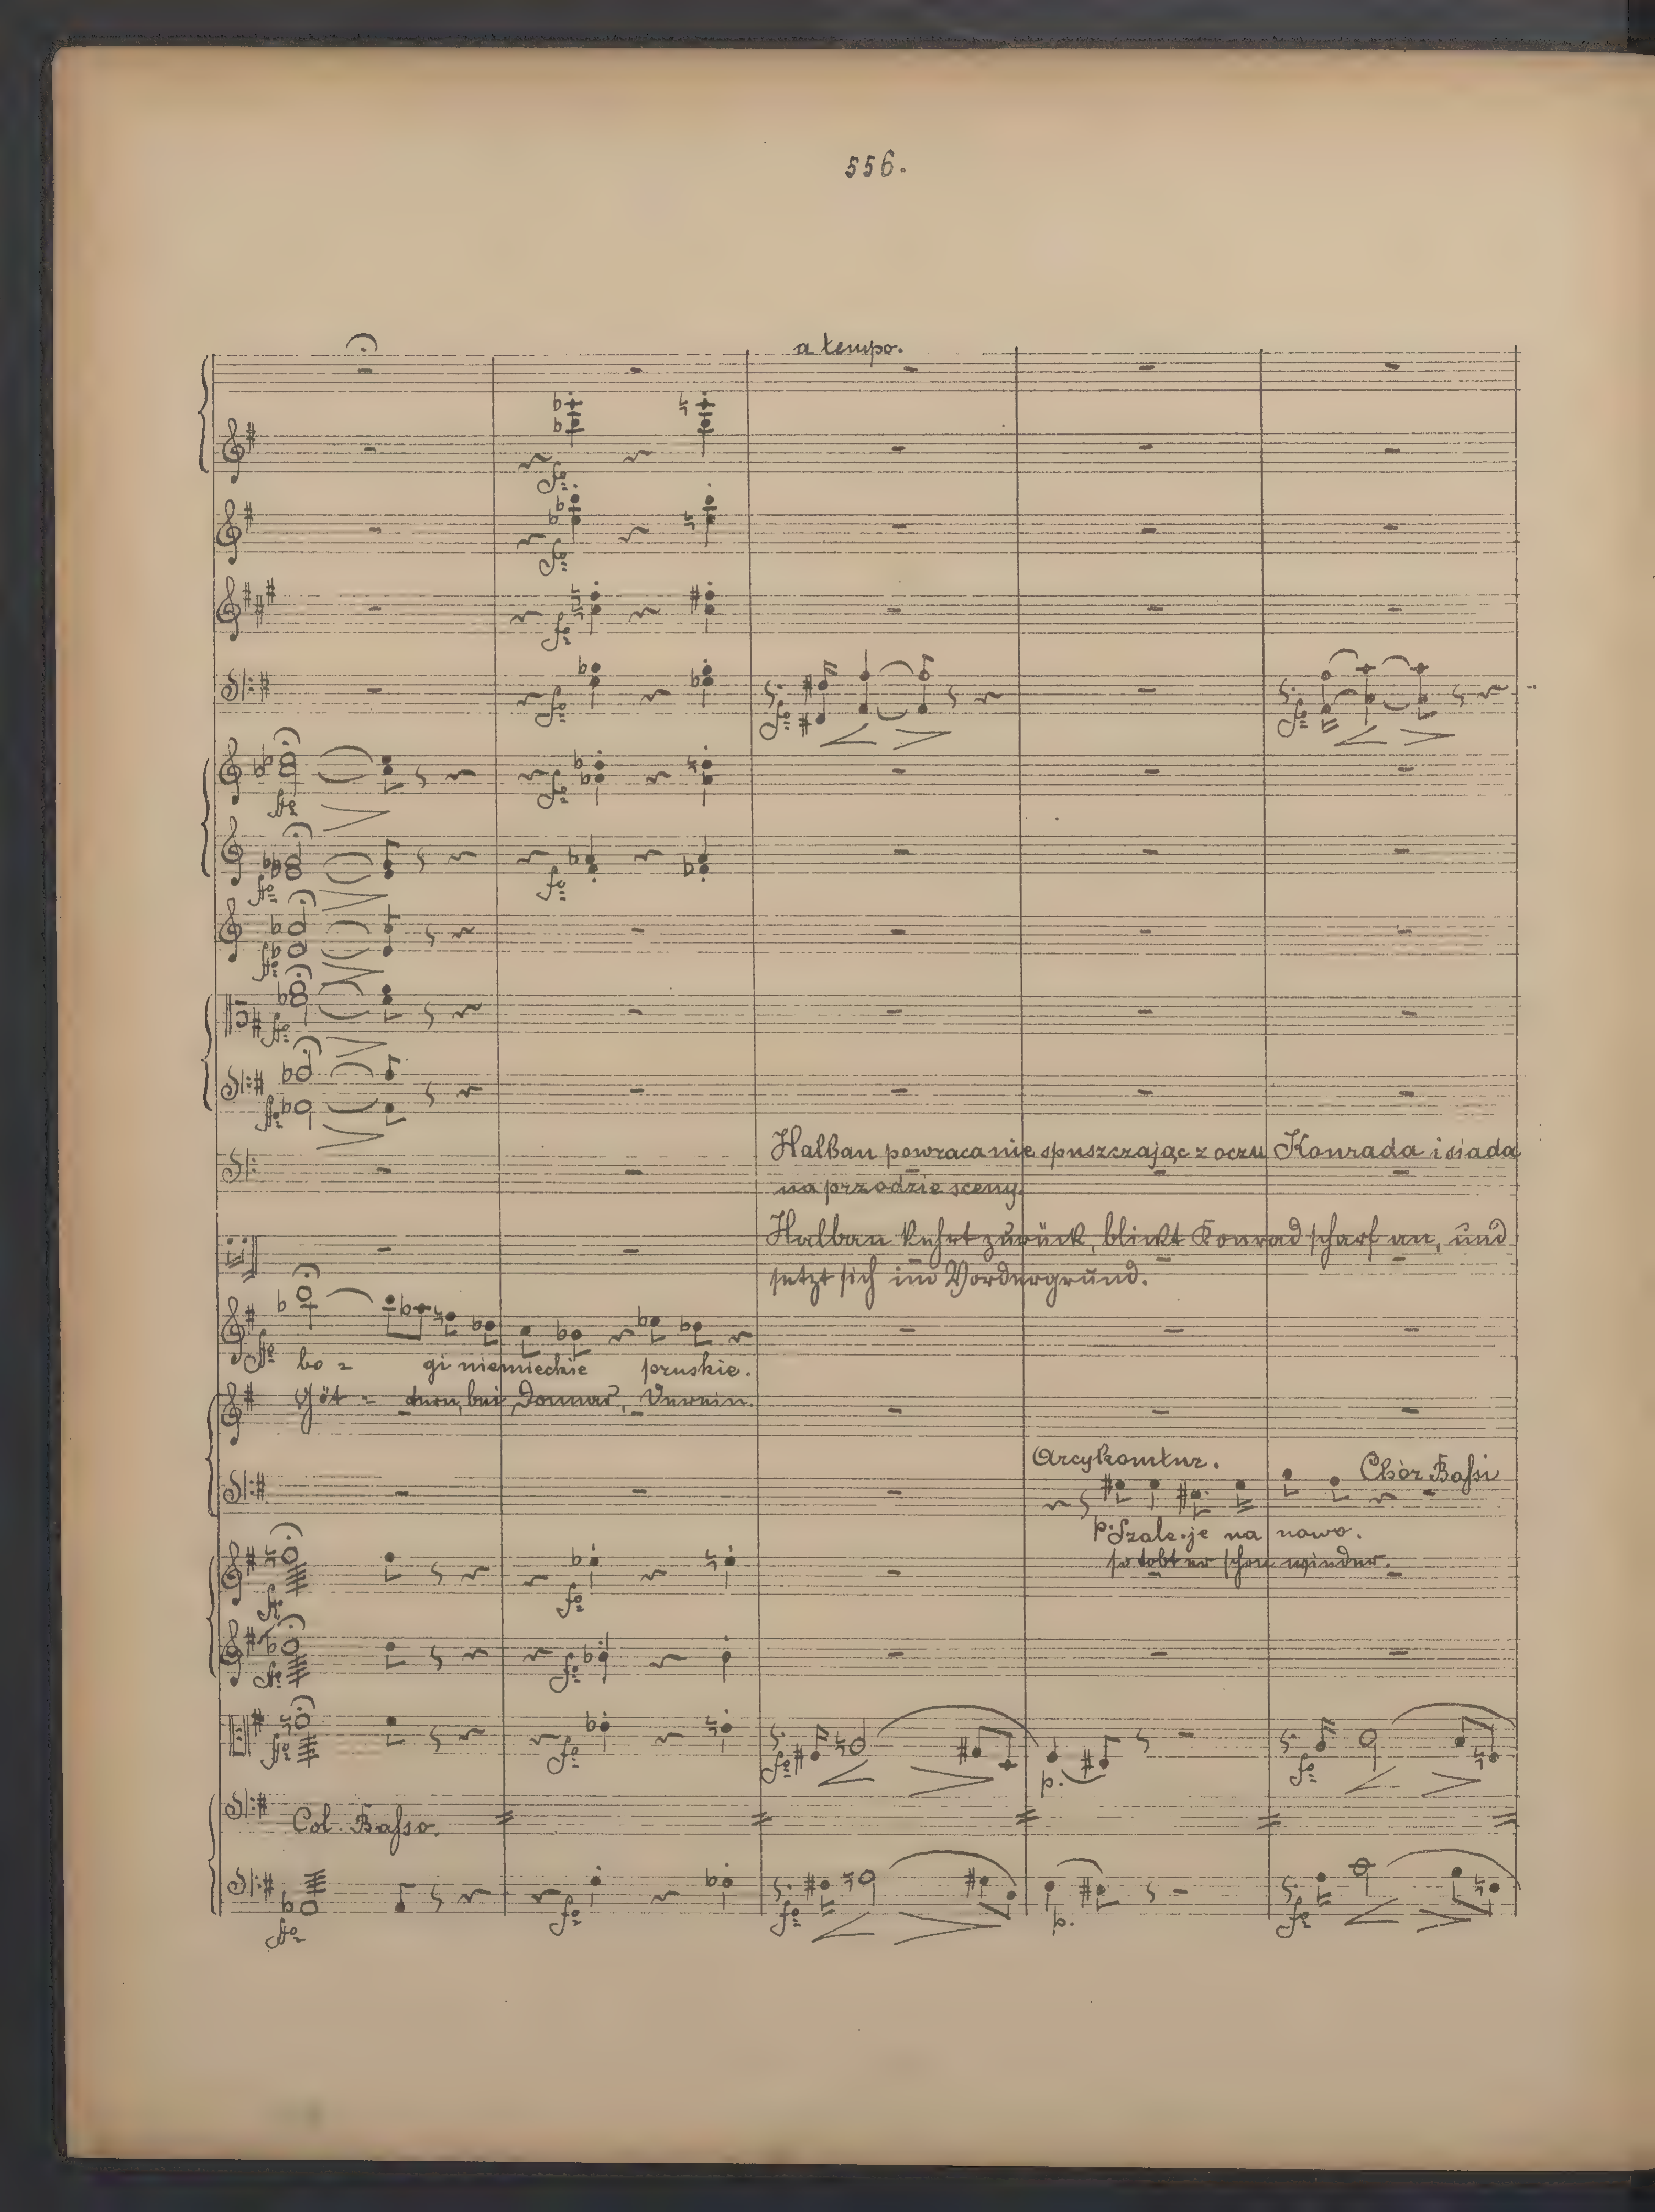 556.
a tempo.
Halban powraca nie spuszczając z oczu Konrada i siada
na przodzie sceny.
Halban kehrt zurück, blickt Konrad scharf an, und
setzt sich im Vordergrund.
bo = gi niemieckie pruskie.
Göt = tern, bei Donnar,
Arcykomtur.
Chór Bassi
p. Szale-je na nowo.
so tobt er schon wieder.
Col. Basso.